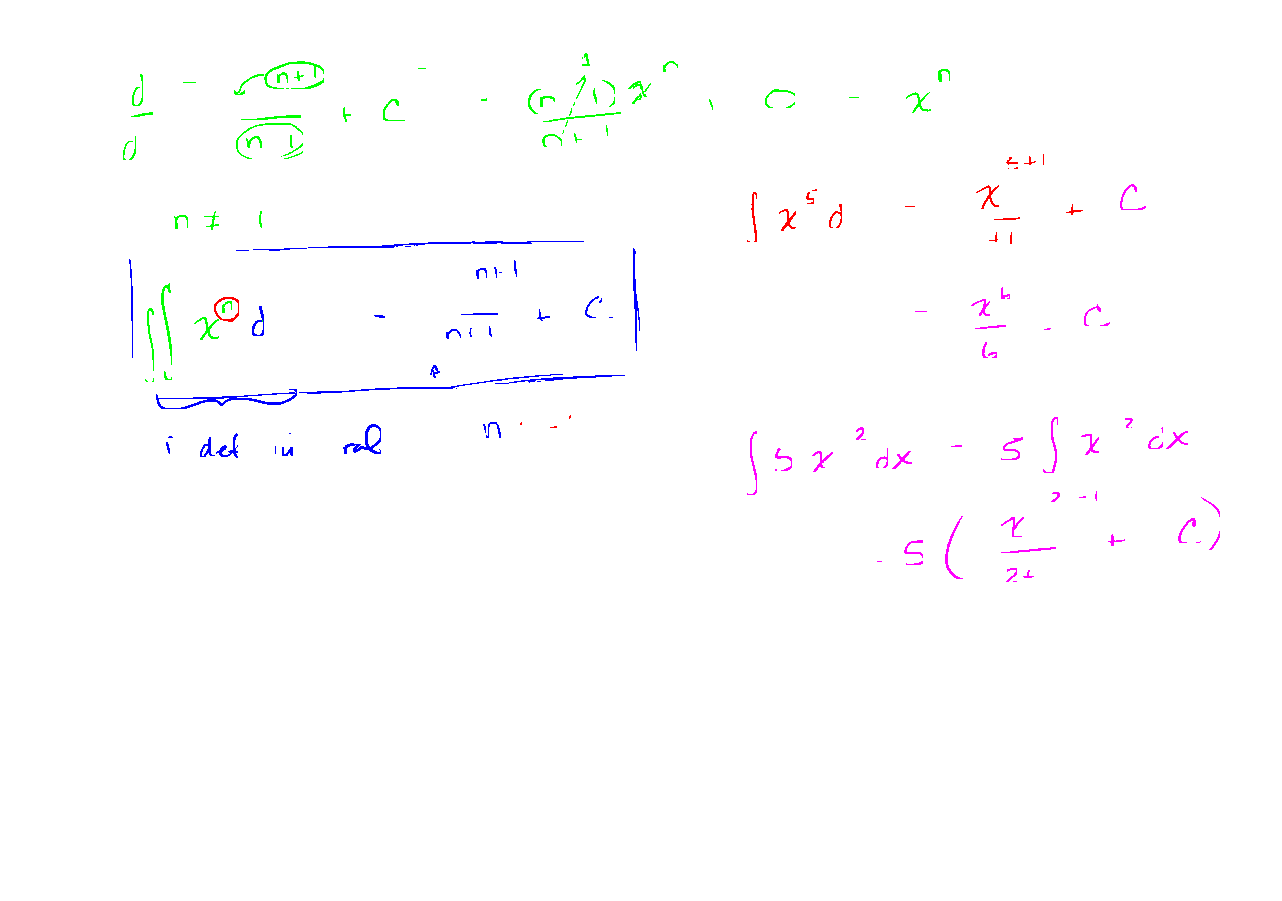 d/d (n+1)/(n 1) + C - (n 1)/(n+1) x^n , 0 - x^n
n ≠ 1
∫∫ x^n d - n+1/n+1 + C
i def in ral n
∫ x^5 d - x^5+1/+1 + C
- x^6/6 - C
∫ 5 x^2 dx - 5 ∫ x^2 dx
- 5 ( x^2-1/2+ + C )